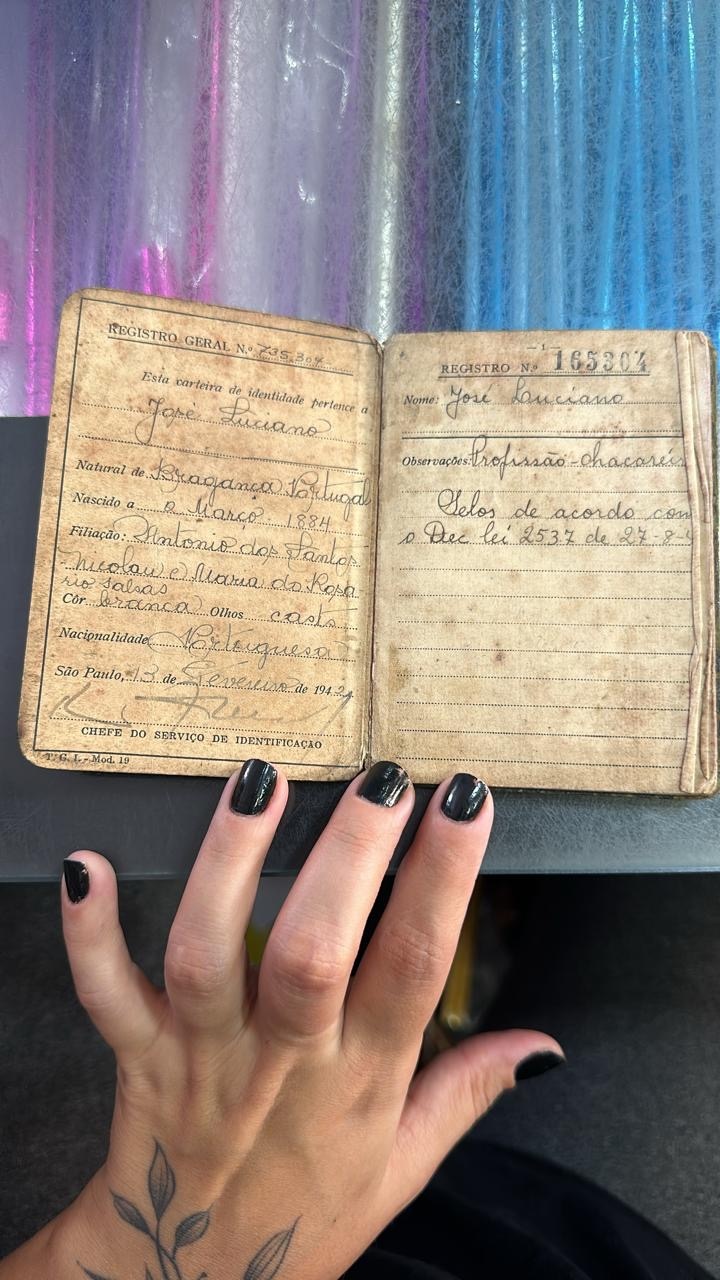 REGISTRO GERAL N.º 735.304
Esta carteira de identidade pertence a
José Luciano
Natural de Bragança Portugal
Nascido a o Março 1884
Filiação: Antonio dos Santos
Nicolau e Maria do Rosa
rio Salsas
Côr branca Olhos casts
Nacionalidade Portuguesa
São Paulo, 13 de Fevereiro de 1942
CHEFE DO SERVIÇO DE IDENTIFICAÇÃO
T. G. I. - Mod. 19
— 1 —
REGISTRO N.º 165304
Nome: José Luciano
Observações Profissão - chacareir
Selos de acordo com
o Dec lei 2537 de 27-8-4